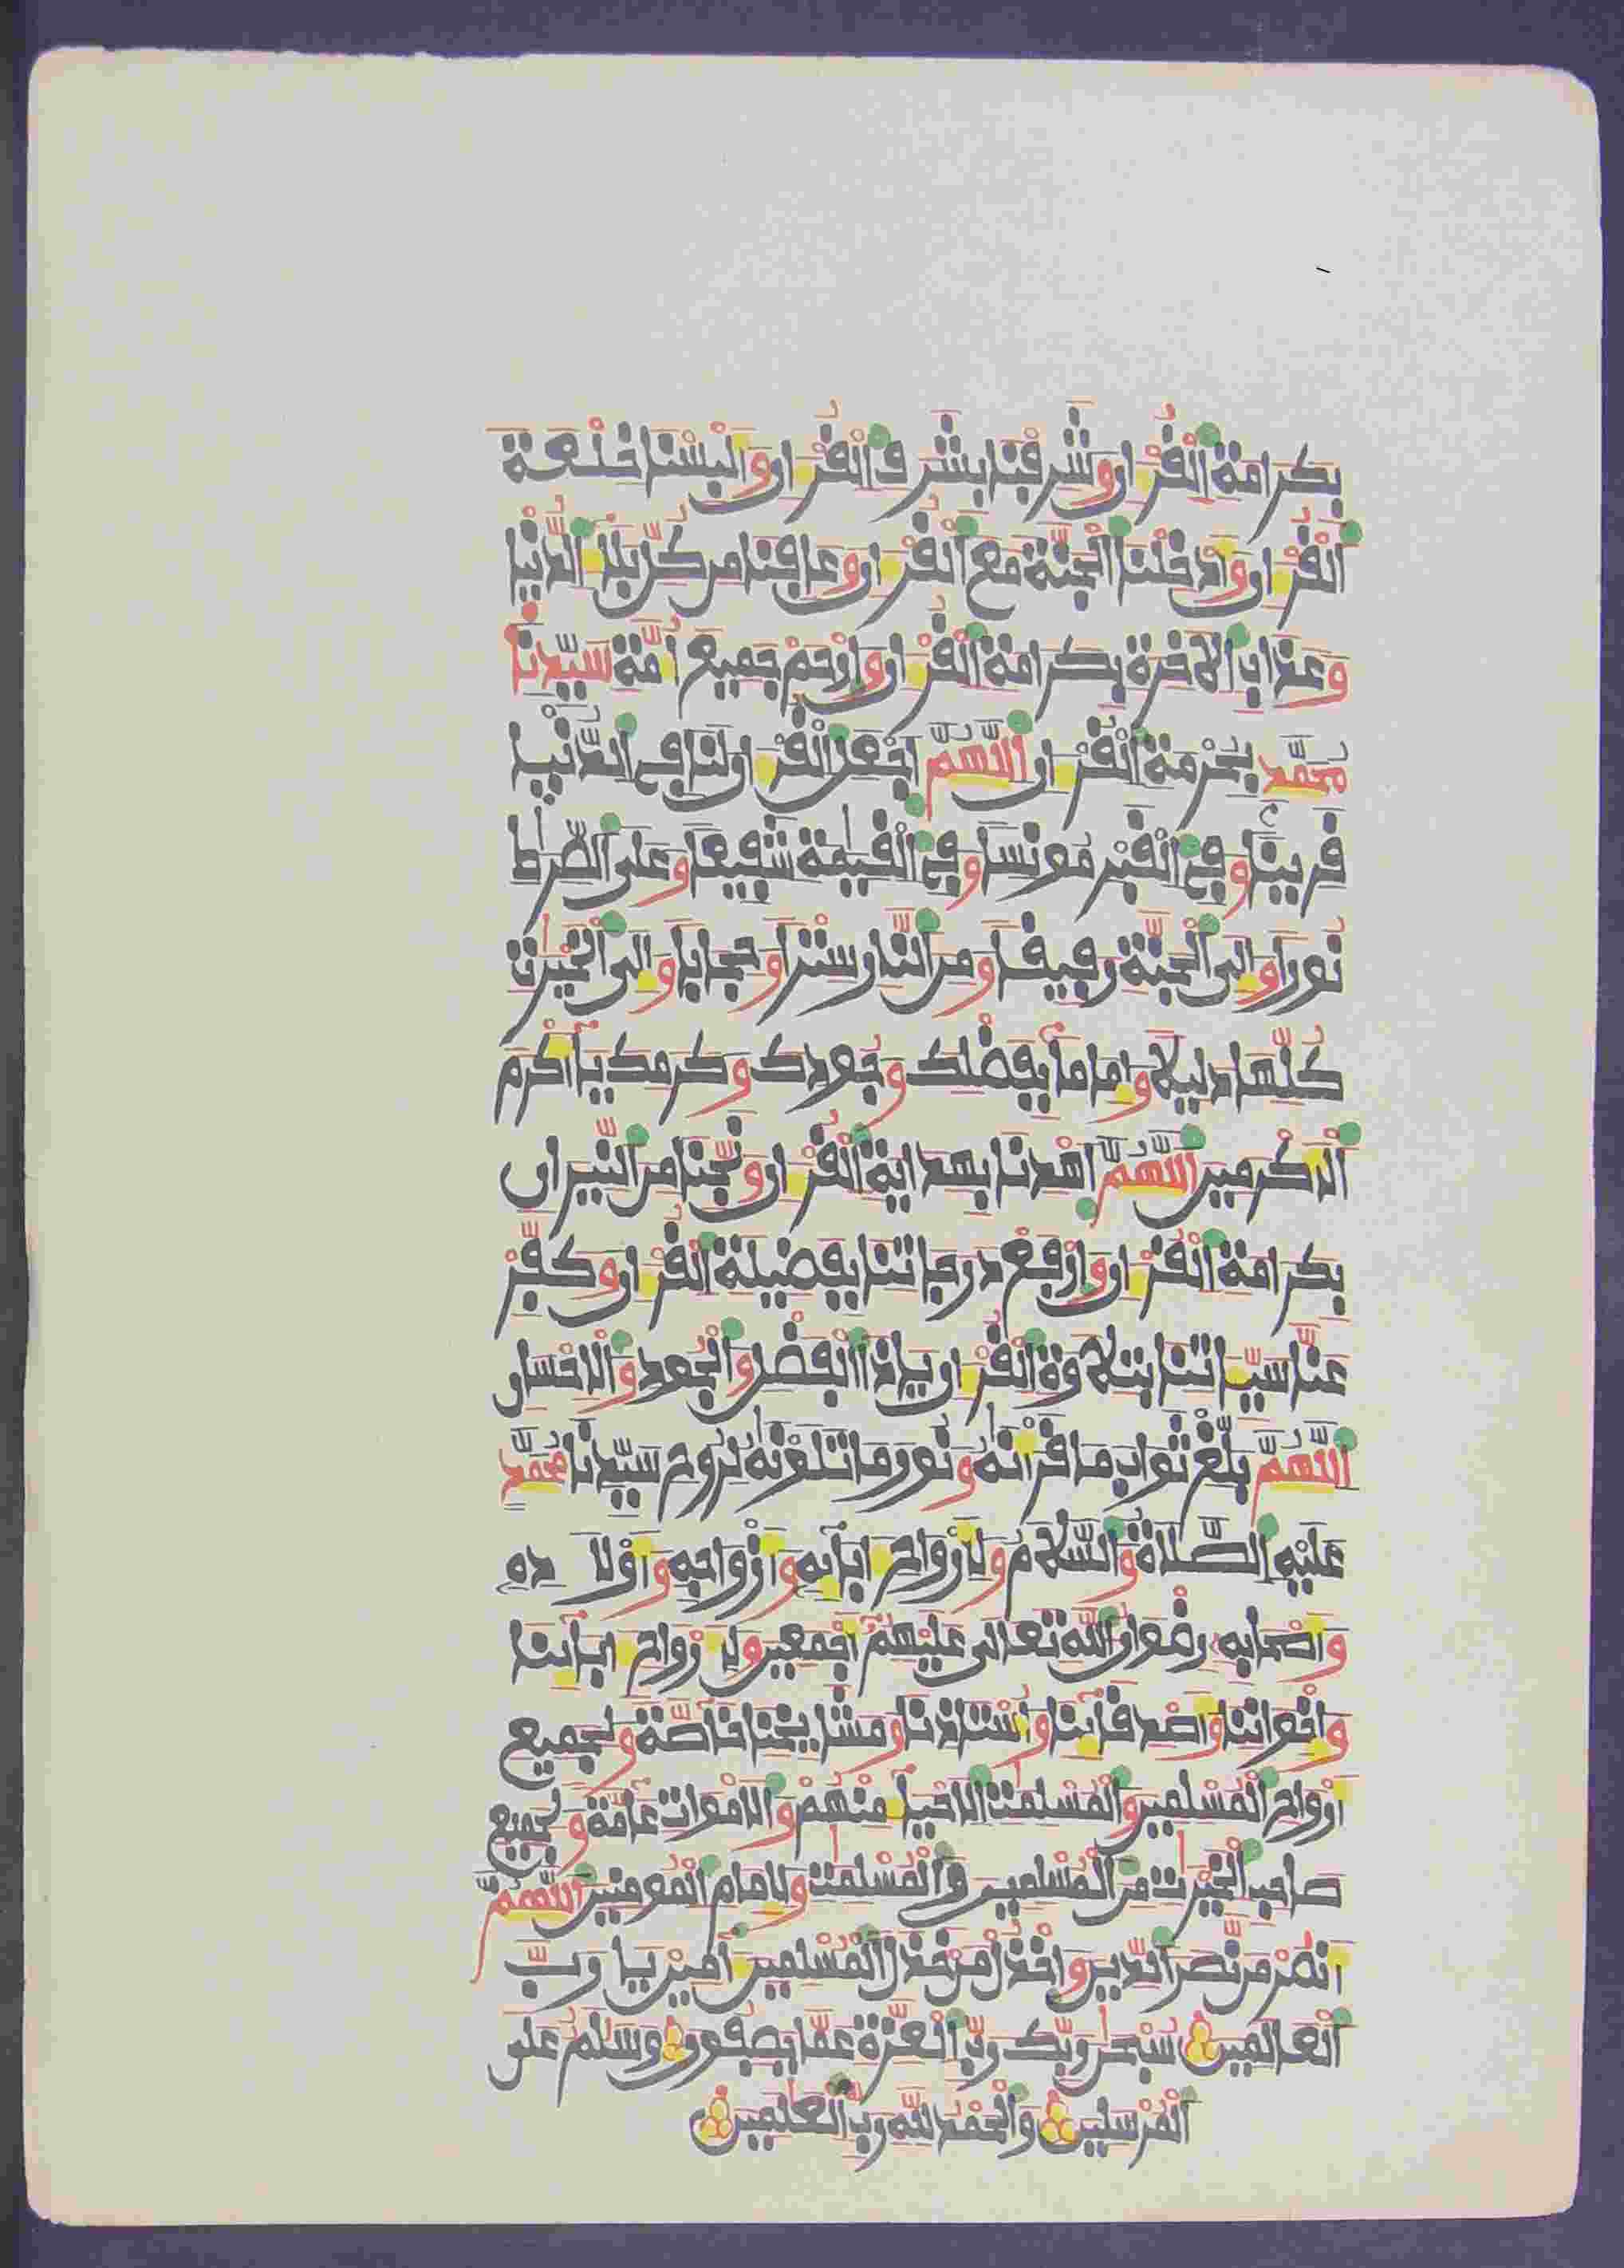 بكرامة القرءان وشرفنا بشرف القرءان والبسنا خلعة
القرءان وادخلنا الجنة مع القرءان وعافنا من كل بلاء الدنيا
وعذاب الاخرة بكرامة القرءان وارحم جميع امة سيدنا
محمد بحرمة القرءان اللهم اجعل القرءان لنا في الدنيا
قرينا وفي القبر مونسا وفي القيمة شفيعا وعلى الصرط
نورا والى الجنة رفيفا ومن النار سترا وحجابا والى الخيرت
كلها دليلا واماما بفضلك وجودك وكرمك يا اكرم
الاكرمين اللهم اهدنا بهداية القرءان ونجنا من النيران
بكرامة القرءان وارفع درجاتنا بفضيلة القرءان وكفر
عنا سيئاتنا بتلاوة القرءان يا ذا الفضل والجود والاحسان
اللهم بلغ ثواب ما قرأنه ونور ما تلونه لروح سيدنا محمد
عليه الصلاة والسلام ولارواح ابائه وازواجه واولاده
واصحابه رضوان الله تعالى عليهم اجمعين ولارواح ابائنا
واخواننا واصدقائنا واستاذنا ومشايخنا خاصة ولجميع
ارواح المسلمين والمسلمت الاحياء منهم والاموات عامة ولجميع
صاحب الخيرت من المسلمين والمسلمت ولامام المومنين اللهم
انصر من نصر الدين واخذل من خذل المسلمين امين يا رب
العالمين سبحن ربك رب العزة عما يصفون وسلم على
المرسلين والحمد لله رب العلمين